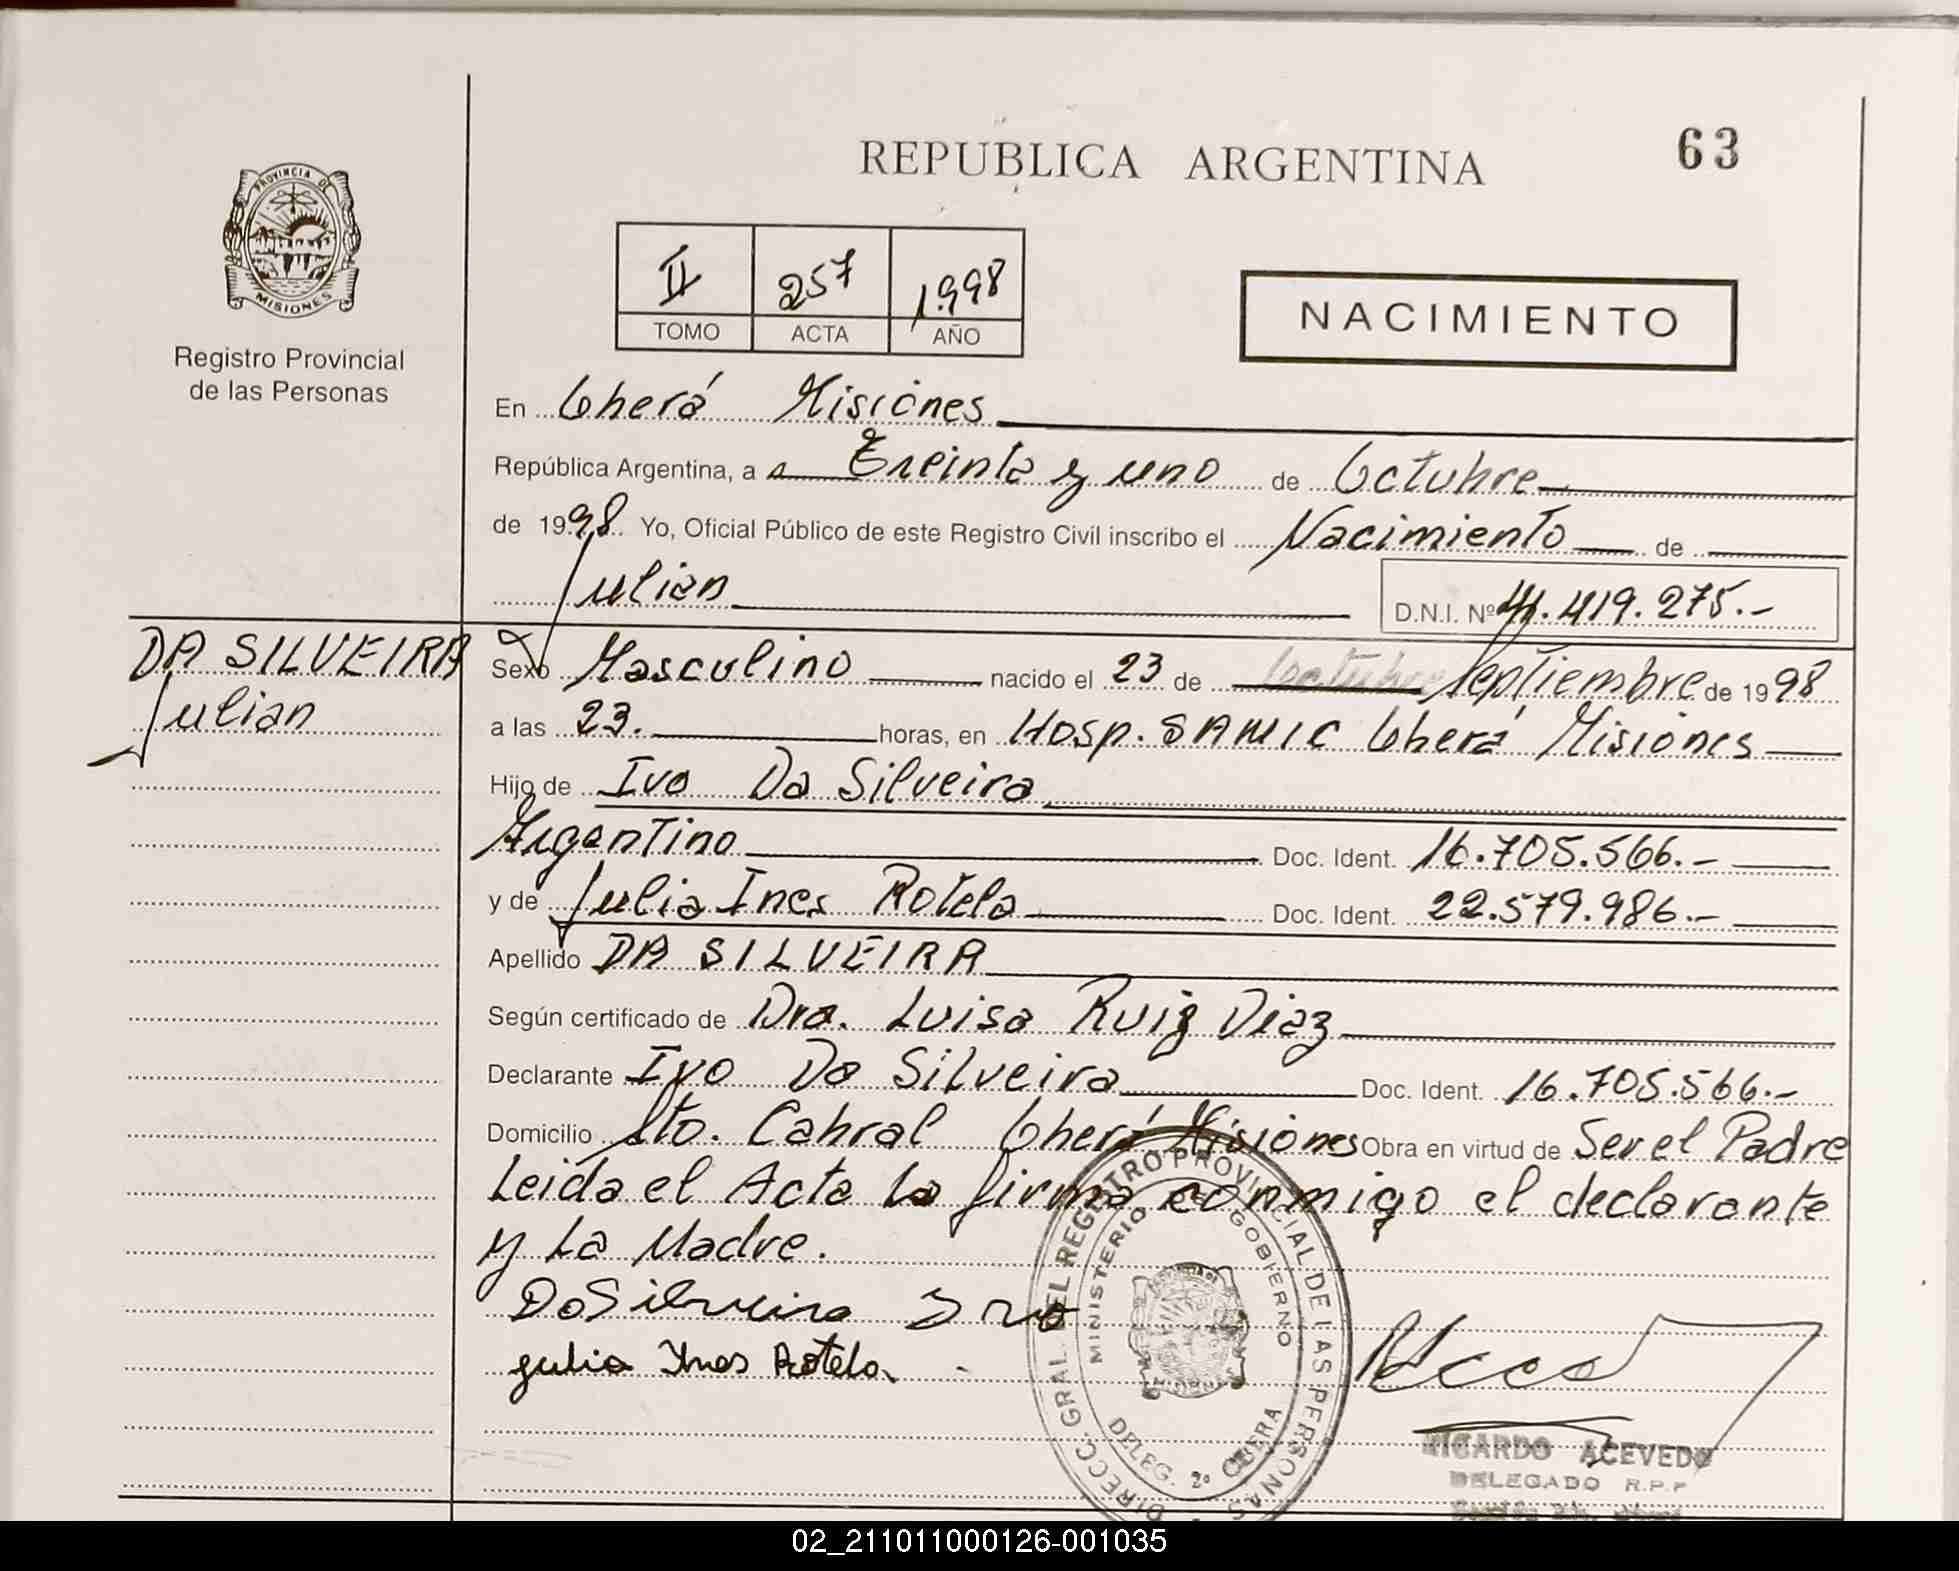 REPUBLICA ARGENTINA
63
PROVINCIA DE
MISIONES
Registro Provincial
de las Personas
II 257 1.998
TOMO ACTA AÑO
NACIMIENTO
En Oberá Misiones
República Argentina, a Treinta y uno de Octubre
de 1998 Yo, Oficial Público de este Registro Civil inscribo el Nacimiento de
Julian D.N.I. Nº 41.419.275.-
DA SILVEIRA
Julian
Sexo Masculino nacido el 23 de Octubre Septiembre de 1998
a las 23. horas, en Hosp. SAMIC Oberá Misiones
Hijo de Ivo Da Silveira
Argentino Doc. Ident. 16.705.566.-
y de Julia Ines Rotela Doc. Ident. 22.579.986.-
Apellido DA SILVEIRA
Según certificado de Dra. Luisa Ruiz Diaz
Declarante Ivo Da Silveira Doc. Ident. 16.705.566.-
Domicilio Sto. Cabral Oberá Misiones Obra en virtud de Ser el Padre
Leida el Acta la firma conmigo el declarante
y La Madre.
DaSilveira Ivo
Julia Ines Rotela
DIRECC. GRAL. DEL REGISTRO PROVINCIAL DE LAS PERSONAS
MINISTERIO DE GOBIERNO
DELEG. 2º OBERA
RICARDO ACEVEDO
DELEGADO R.P.P
02_211011000126-001035